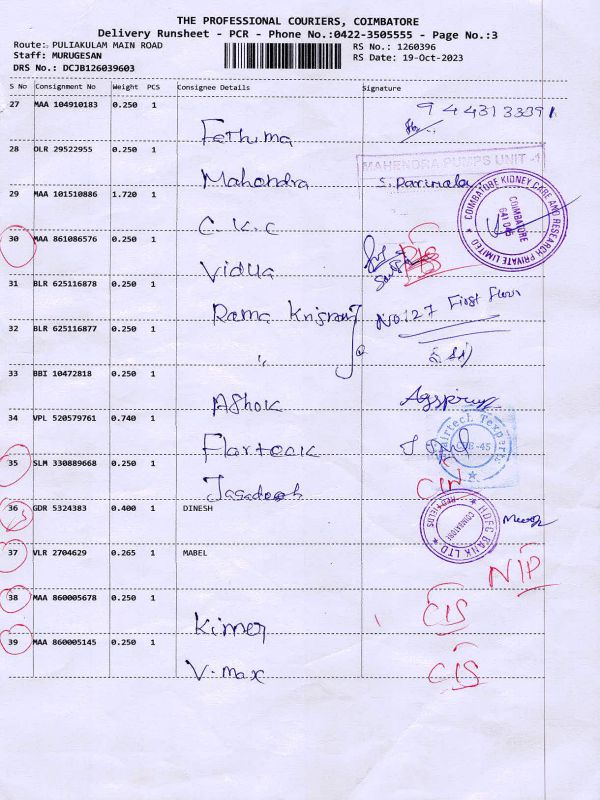 THE PROFESSIONAL COURIERS, COIMBATORE
Delivery Runsheet - PCR - Phone No.:0422-3505555 - Page No.:3
Route: PULIAKULAM MAIN ROAD
RS No.: 1260396
Staff: MURUGESAN
RS Date: 19-Oct-2023
DRS No.: DCJB126039603
S No Consignment No Weight PCS Consignee Details Signature
27 MAA 104910183 0.250 1
9443133391
Fathima
28 DLR 29522955 0.250 1
MAHENDRA PUMPS UNIT -1
Mahendra S. Parimala
29 MAA 101510886 1.720 1
COIMBATORE KIDNEY CARE AND RESEARCH PRIVATE LIMITED
COIMBATORE
C.K.C
30 MAA 861086576 0.250 1
Vidya
31 BLR 625116878 0.250 1
Rama No:27 First Floor
32 BLR 625116877 0.250 1
"
33 BBI 10472818 0.250 1
Ashok
34 VPL 520579761 0.740 1
35 SLM 330889668 0.250 1
CIN
36 GDR 5324383 0.400 1 DINESH
HDFC BANK LTD.
COIMBATORE
37 VLR 2704629 0.265 1 MABEL
NIP
38 MAA 860005678 0.250 1
Kimer CIS
39 MAA 860005145 0.250 1
V-max CIS